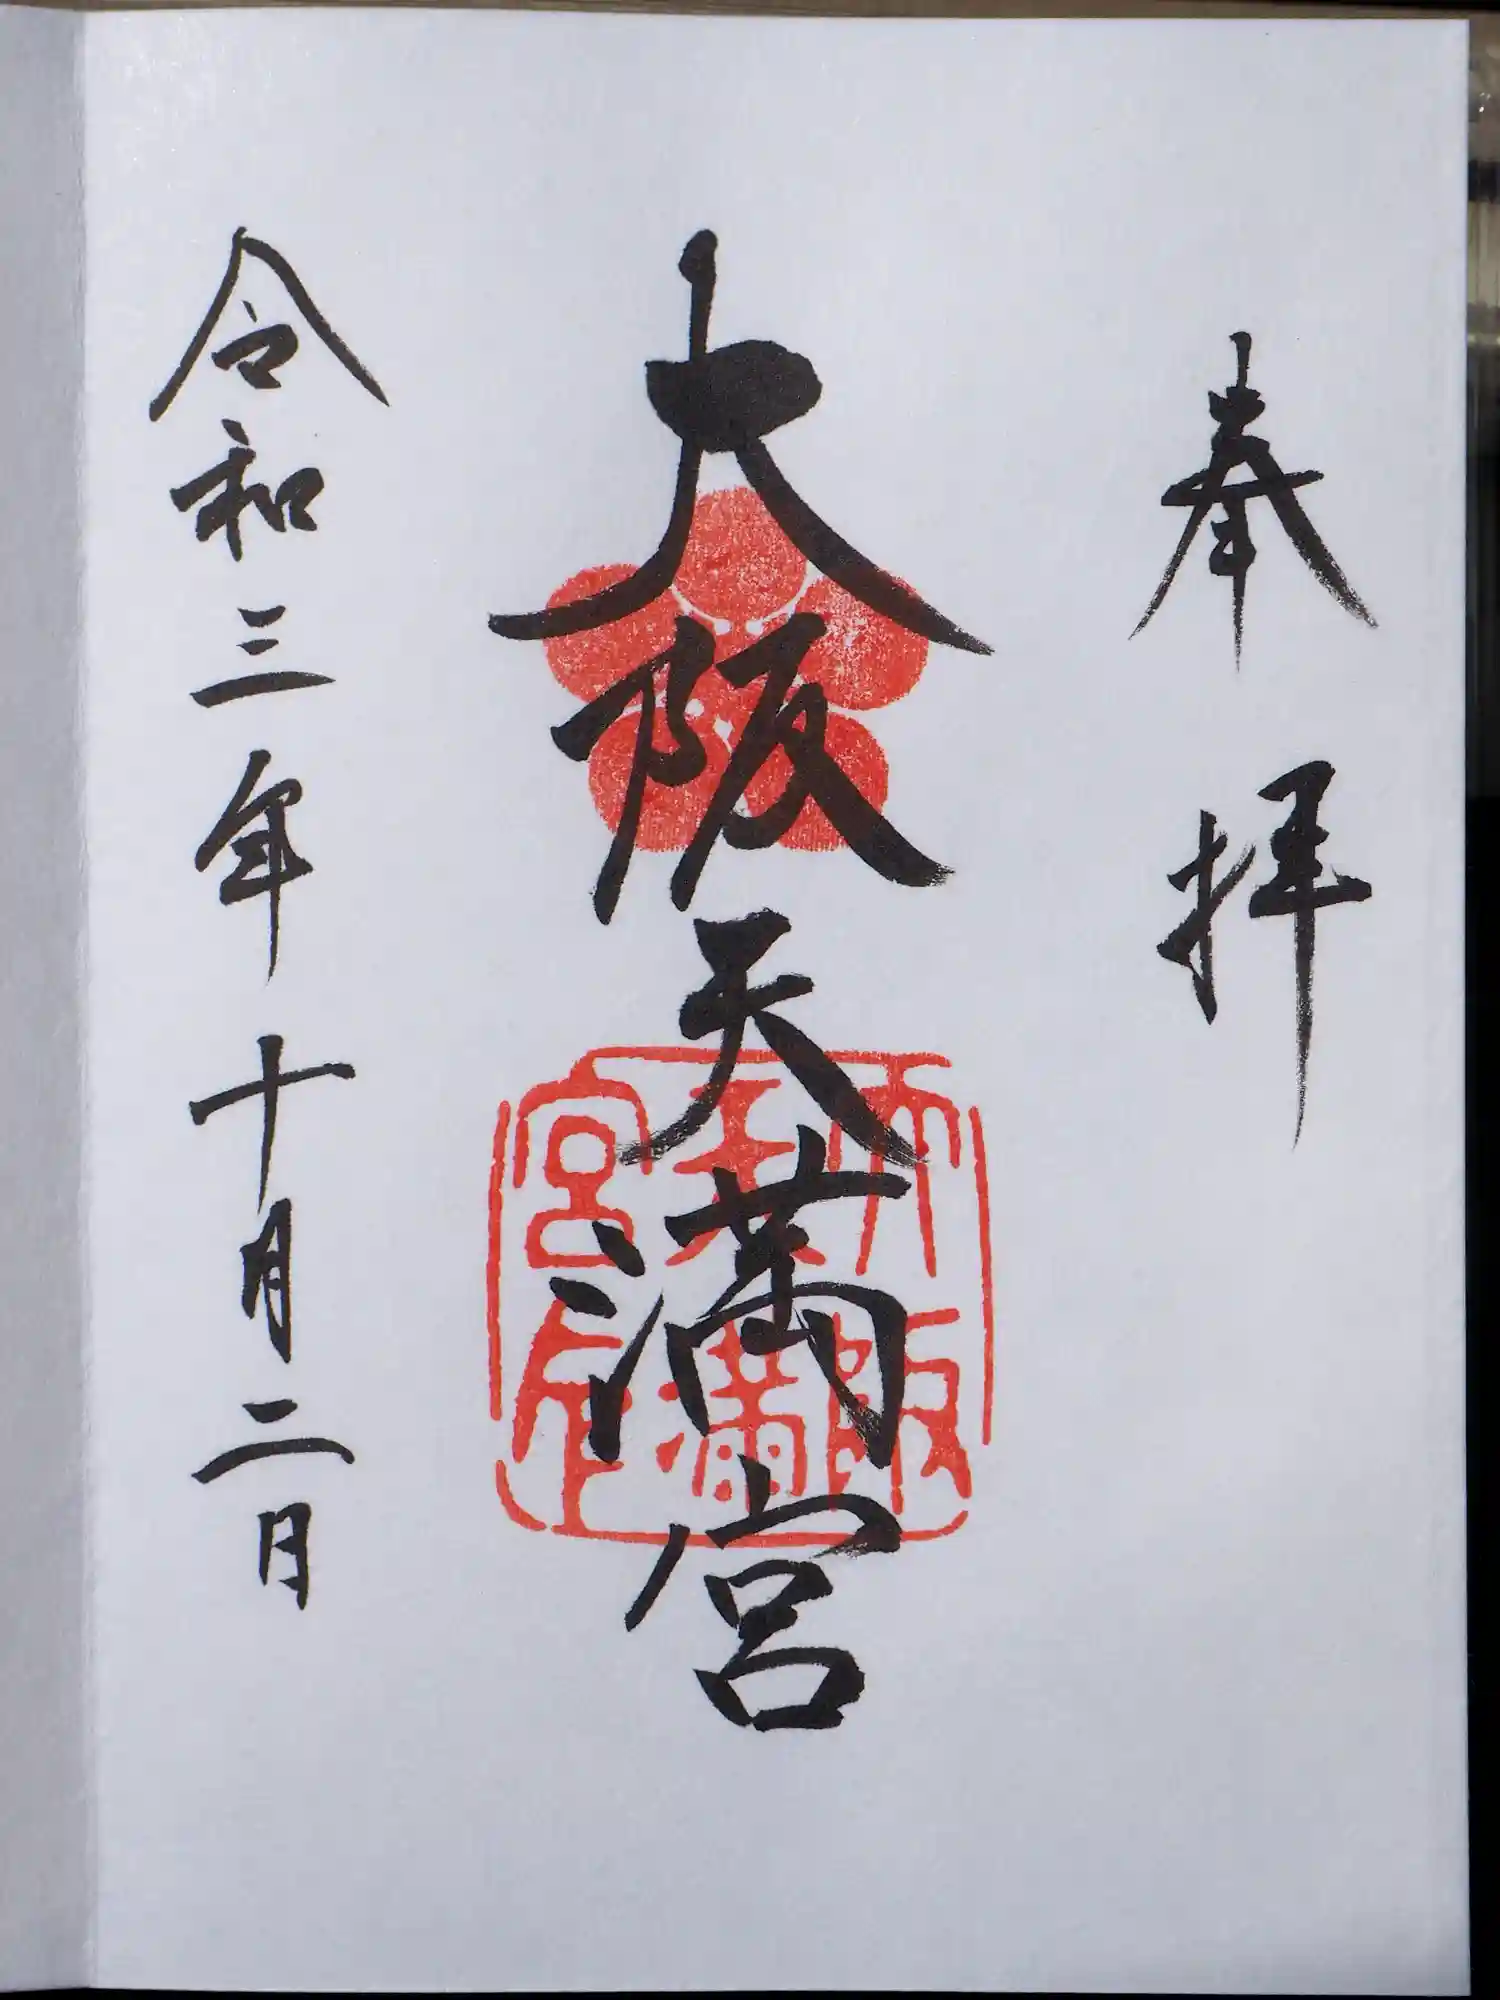 奉拝
大阪天満宮
大阪天満宮印
令和三年十月二日